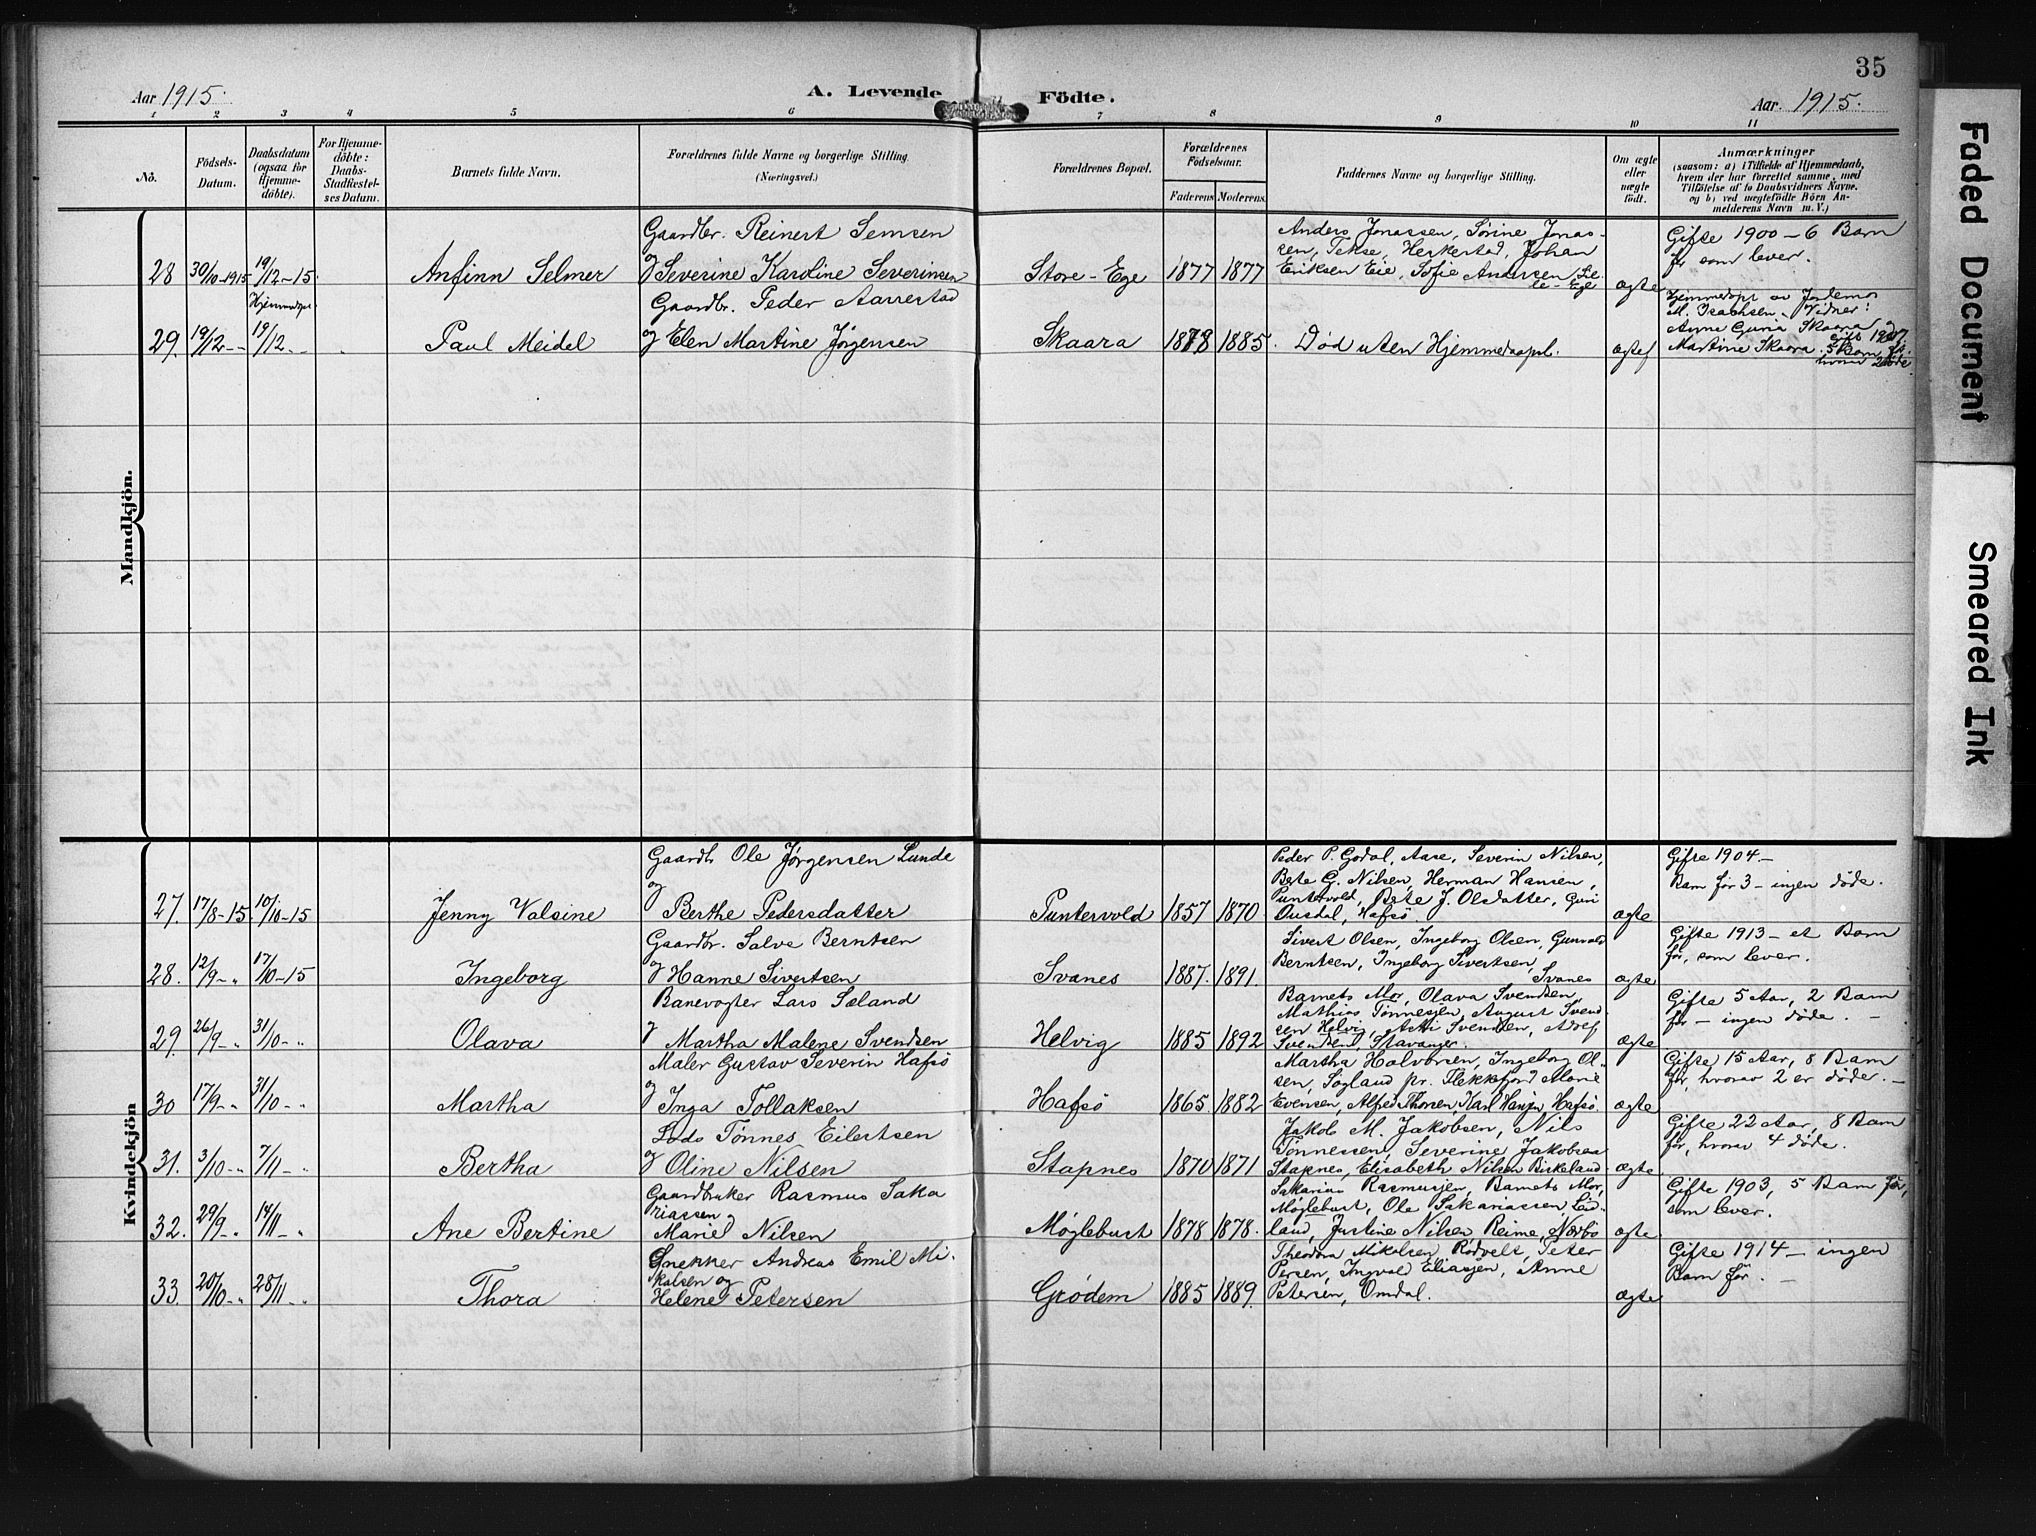 35
Aar 1915.
A. Levende
Födte.
Aar. 1915.
1 2 3 4 5 6 7 8 9 10 11
No.
Födsels-
Datum.
Daabsdatum
(ogsaa for
Hjemme-
döbte).
For Hjemme-
döbte:
Daabs-
Stadfæstel-
ses Datum.
Barnets fulde Navn.
Forældrenes fulde Navne og borgerlige Stilling.
(Næringsvei.)
Forældrenes Bopæl.
Forældrenes
Födselsaar.
Faderens
Moderens.
Faddernes Navne og borgerlige Stilling.
Om ægte
eller
uægte
födt.
Anmærkninger
(saasom: a) i Tilfælde af Hjemmedaab,
hvem der har forrettet samme, med
Tilföielse af to Daabsvidners Navne,
og b) ved uægtefödte Börn An-
melderens Navn m. V.)
Mandkjön.
28 30/10-1915 19/12-15. Anfinn Selmer
Gaardbr. Reinert Semsen
og Severine Karoline Severinsen
Store-Ege 1877 1877
Anders Jonassen, Sørine Jonas-
sen, Tekse, Herkestad, Johan
Eriksen Eie, Sofie Andersen, Lil-
le-Ege
ægte
Gifte 1900 - 6 Barn
før som lever.
29. 19/12 -- Hjemmedpt 19/12 -- Paul Meidel
Gaardbr. Peder Aarrestad
og Elen Martine Jørgensen
Skaara 1878 1885.
Død uten Hjemmedaapst.
ægte
Hjemmedøpt av Jordemor
M. Isachsen. Vidner:
Anne Guria Skaara og
Martine Skaara. gift 1907
5 Barn før.
hvorav 2 døde.
Kvindekjön
27. 17/8-15 10/10-15 Jenny Valsine
Gaardb. Ole Jørgensen Lunde
og
Berthe Pedersdatter
Puntervold 1857 1870
Peder P. Godal, Aase, Severin Nilsen,
Bete G. Nilsen, Herman Hansen,
Puntervold, Bete J. Olsdatter, Guri
Ousdal, Hafsø.
ægte
Gifte 1904 -
Barn før 3 - ingen døde.
28. 12/9 - " 17/10-15 Ingeborg
Gaardbr. Salve Berntsen
og Hanne Sivertsen
Svanes 1887. 1891.
Sivert Olsen, Ingeborg Olsen, Gunvald
Berntsen, Ingeborg Sivertsen,
Svanes
ægte
Gifte 1913 - et Barn
før, som lever.
29. 26/9 - " 31/10 - " Olava
Banevogter Lars Sæland
og Martha Malene Svendsen
Helvig 1885 1892
Barnets Mor, Olava Svendsen,
Mathias Tønnesjen, August Svend-
sen Helvig, Atti Svendsen, Adolf
Svendsen, Stavanger.
ægte
Gifte 5 Aar, 2 Barn
før - ingen døde. -
30 17/9 - " 31/10 - " Martha
Maler Gustav Severin Hafsø
og
Inga Tollaksen
Hafsø 1865 1882
Martha Halvorsen, Ingeborg Ol-
sen, Søgland pr. Flekkfjord Marie
Evensen, Alfred Thorsen, Karl Hansen Hafsø.
ægte
Gifte 15 Aar, 8 Barn
før, hvorav 2 er døde. -
31. 3/10 - " 7/11 - " Bertha
Lods Tønnes Eilertsen
og Oline Nilsen
Stapnes 1870 1871
Jakob M. Jakobsen, Nils
Tønnessen, Severine Jakobsen
Stapnes, Elisabeth Nilsen Birkeland.
ægte
Gifte 22 Aar, 8 Barn
før, hvorav 4 døde.
32. 29/9 - " 14/11 - " Ane Bertine
Gaardbruker Rasmus Saka
riassen og
Marie Nilsen
Møglebust 1878 1878.
Sakarias Rasmusjen, Barnets Mor,
Møglebust, Ole Sakariassen, Lid-
land, Justine Nilsen Reime, Nærbø
ægte
Gifte 1903, 5 Barn før,
som lever.
33. 20/10 - " 28/11 - " Thora
Snekker Andreas Emil Mi-
kalsen og
Helene Petersen
Grødem 1885 1889.
Theodor Mikalsen, Rødvelt, Peter
Persen, Ingvald Eliasjen, Anne
Petersen, Omdal.
ægte
Gifte 1914 - ingen
Barn før. -
Faded Document
Smeared Ink